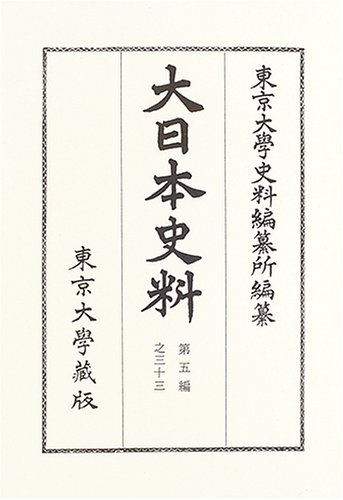 東京大學史料編纂所編纂
大日本史料
第五編
之三十三
東京大學藏版